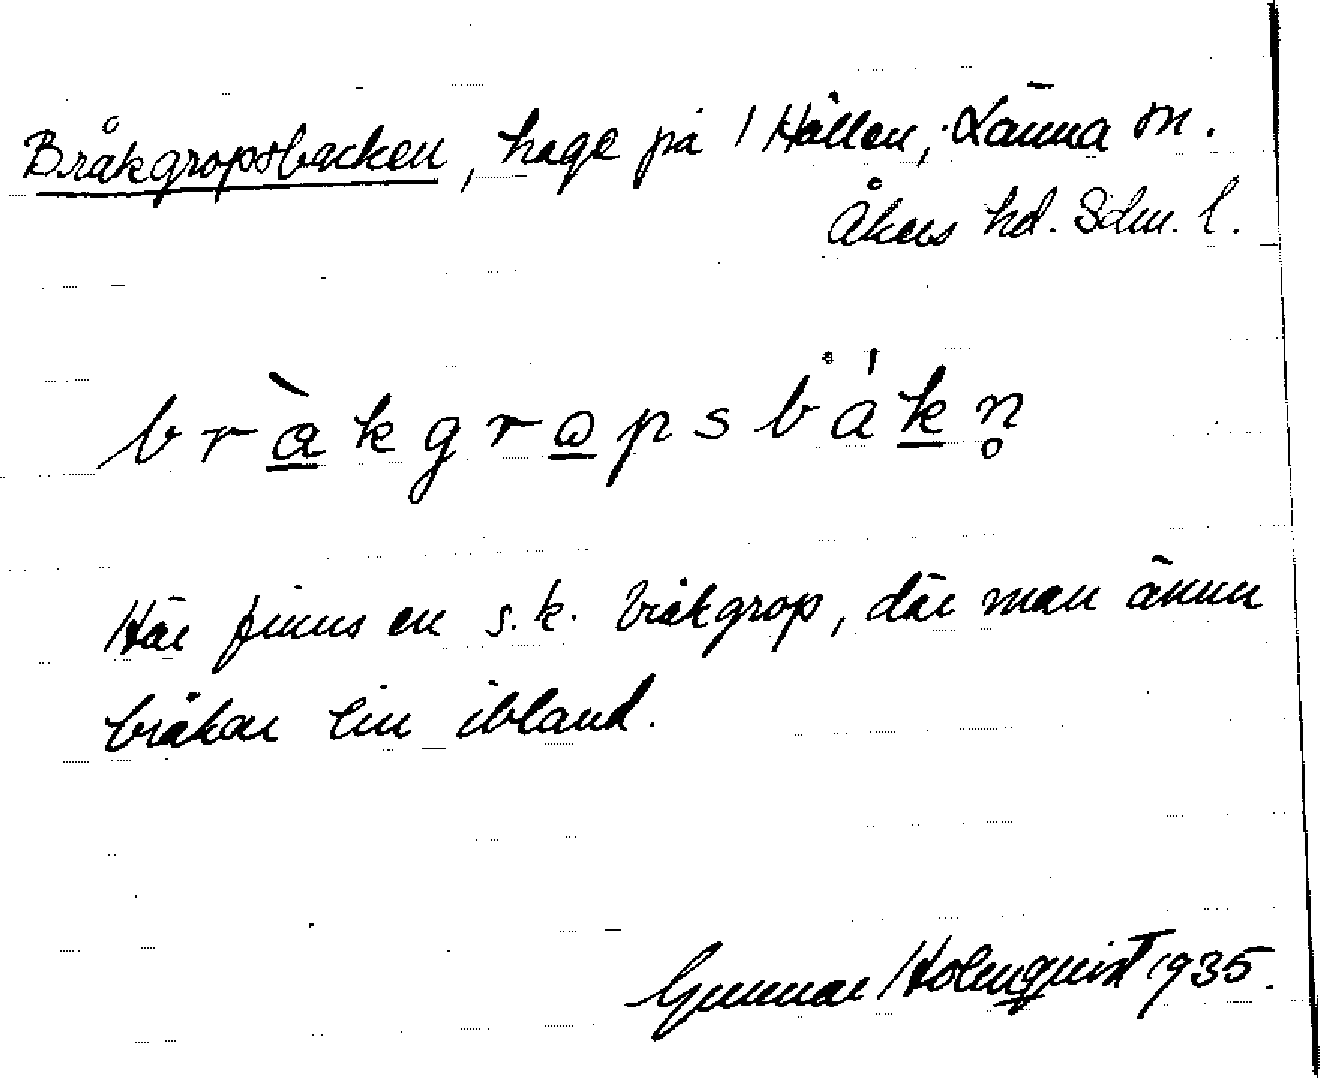 Bråkgropsbacken, hage på Hållen, Länna sn.
Åkers hd. Sdm. l.
bràkgropsbákn̥
Här finns en s.k. bråkgrop, där man ännu
bråkar lin ibland.
Gunnar Holmquist 1935.